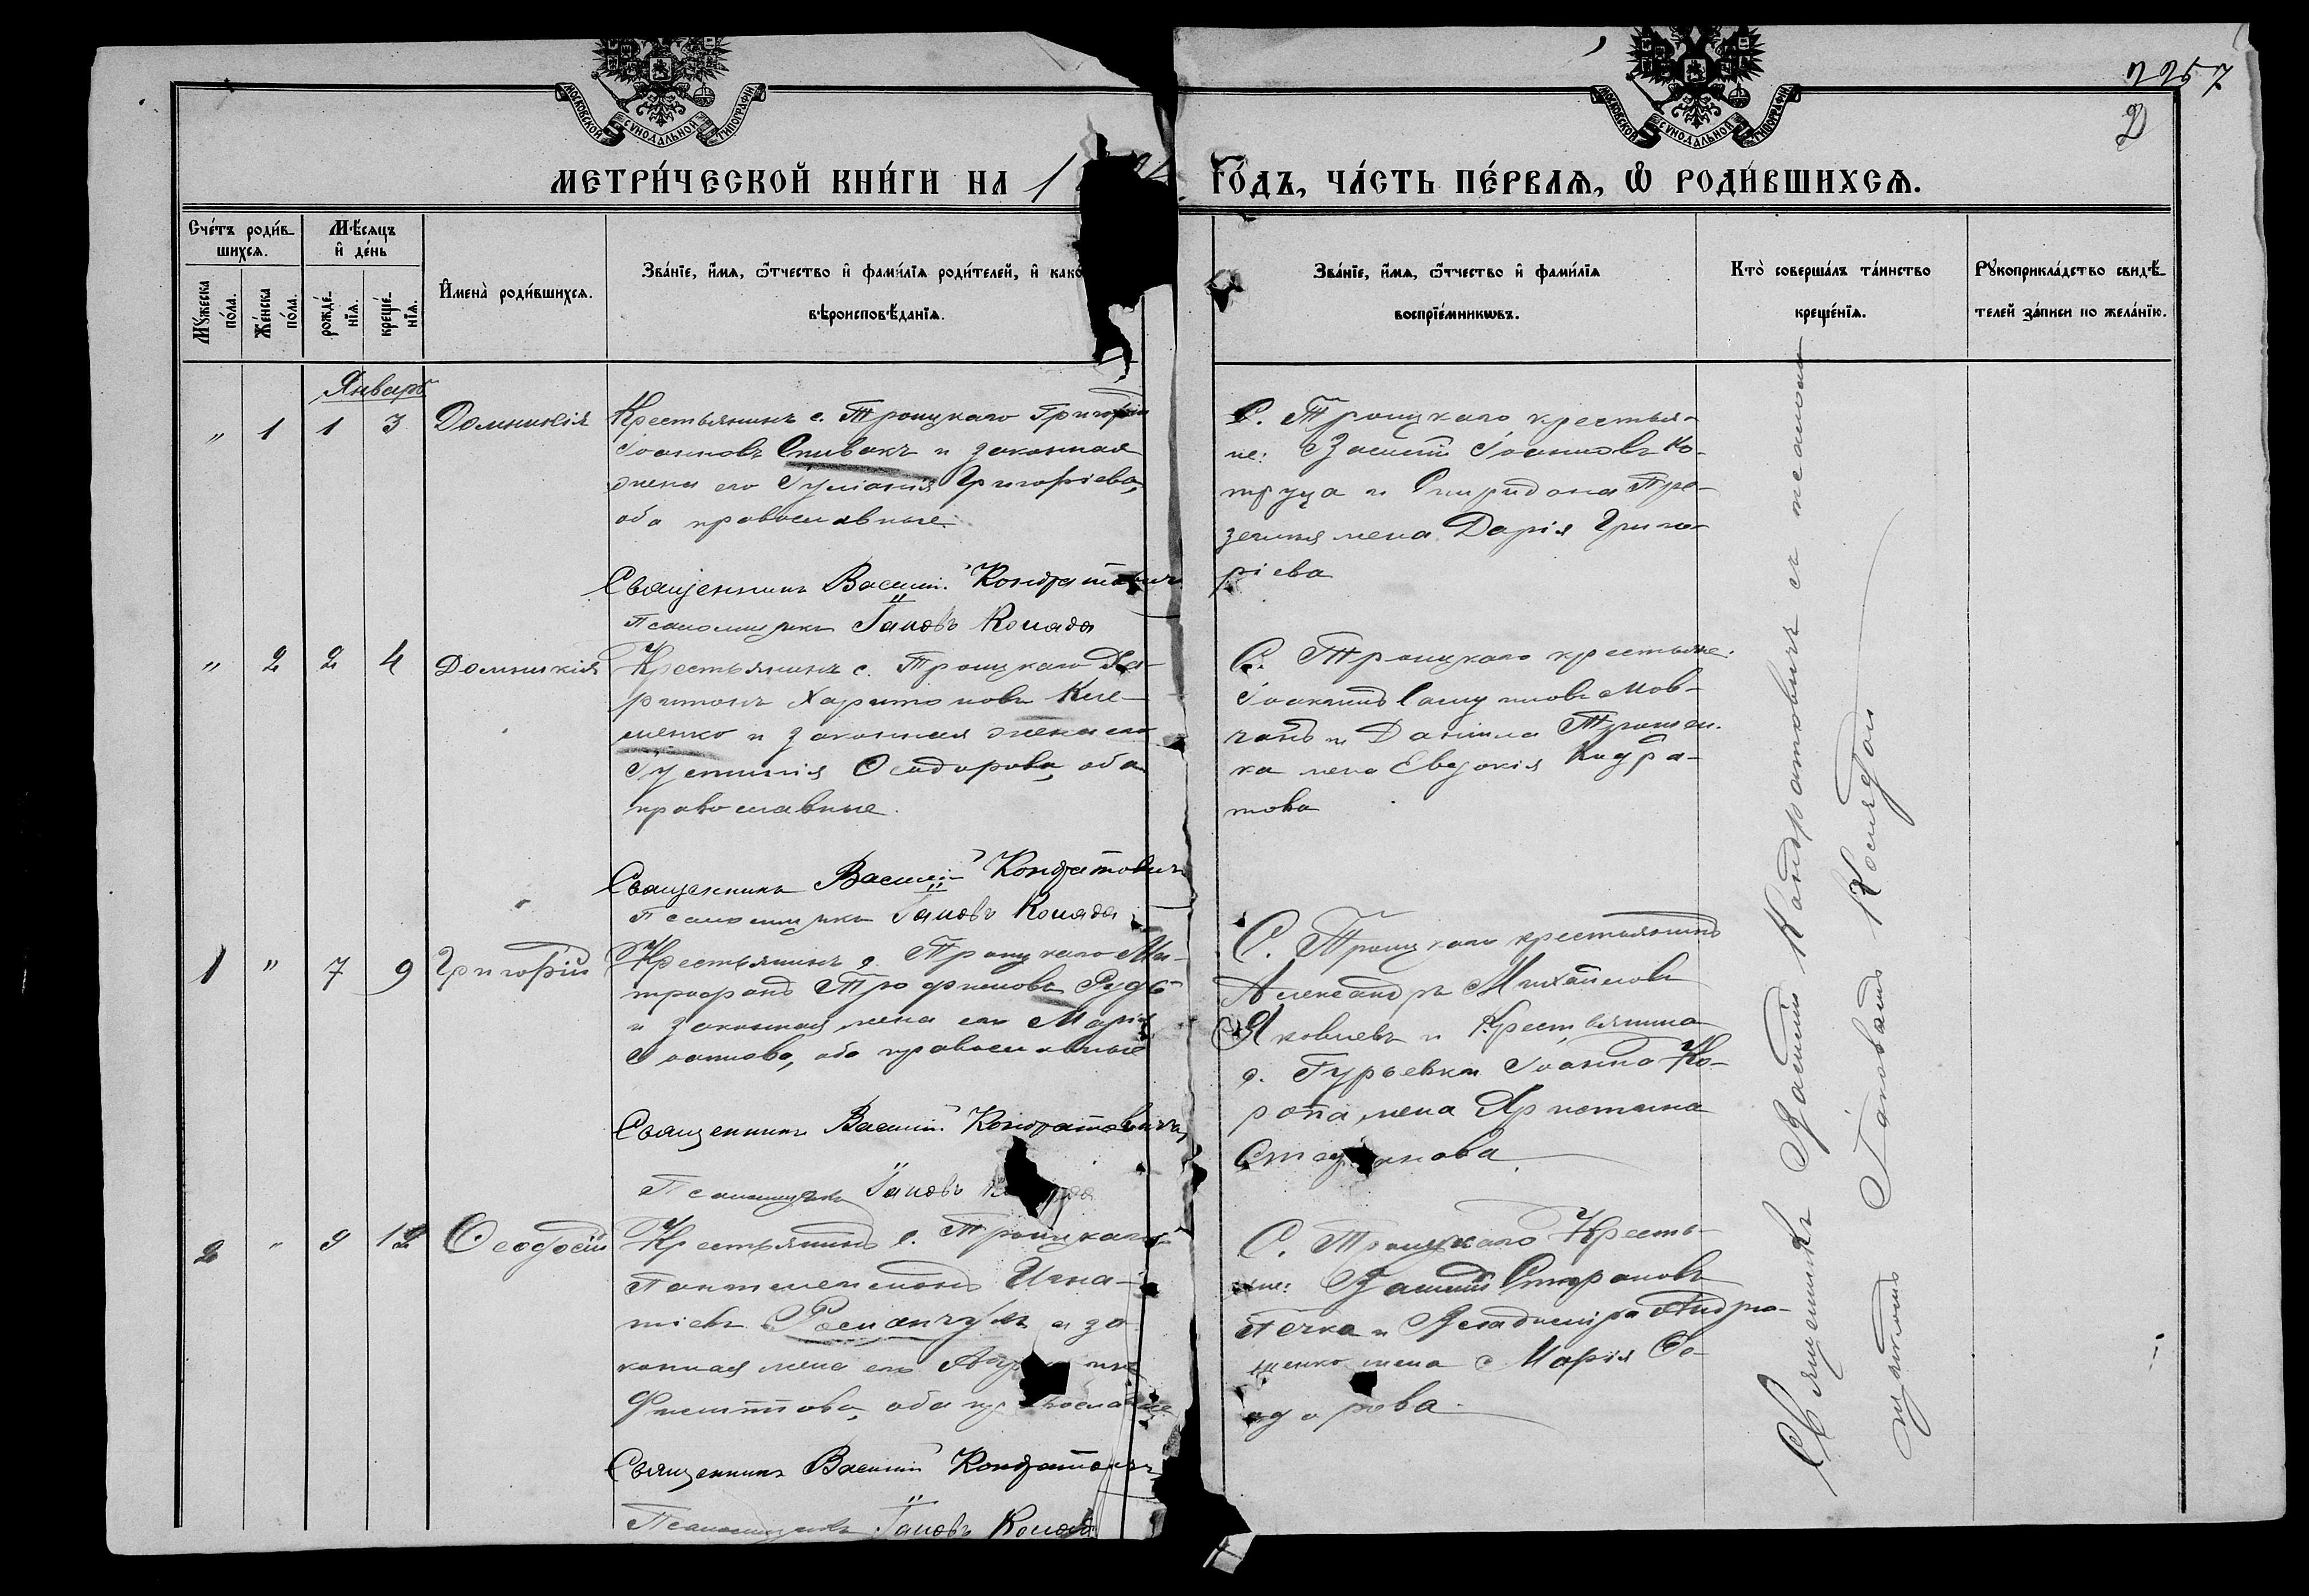 МОСКОВСКОЙ СѴНОДАЛЬНОЙ ТИПОГРАФІИ
МОСКОВСКОЙ СѴНОДАЛЬНОЙ ТИПОГРАФІИ
2257
2
МЕТРИ́ЧЕСКОЙ КНИ́ГИ НА 1
ГО́ДЪ, ЧА́СТЬ ПЕ́РВАѦ, Ѡ҆ РОДИ́ВШИХСѦ.
Сче́тъ роди́в-
шихсѧ.
Мѣ́сѧцъ
и҆ де́нь
Мꙋ́жеска
по́ла.
Же́нска
по́ла.
рожде́-
нїѧ.
креще́-
нїѧ.
И҆мена̀ роди́вшихсѧ.
Зва́нїе, и҆́мѧ, ѻ҆́тчество и҆ фами́лїѧ роди́телей, и҆ како
вѣроисповѣ́данїѧ.
Зва́нїе, и҆́мѧ, ѻ҆́тчество и҆ фами́лїѧ
воспрїе́мникѡвъ.
Кто̀ соверша́лъ та́инство
креще́нїѧ.
Рꙋкоприкла́дство свидѣ́-
телей за́писи по жела́нїю.
Январь
" 1 1 3 Домникія
Крестьянинъ с. Троицкаго Григорій
Іоанновъ Спивакъ и законная
жена его Іуліанія Григоріева,
оба православные.
Священникъ Василій Кондратовичъ
Псаломщикъ Іаковъ Коляда
С. Троицкаго крестья-
не: Василій Іоанновъ Ко-
труца и Спиридона
жена Дарія Григо-
ріева
" 2 2 4 Домникія
Крестьянинъ с. Троицкаго Ха-
ритонъ Харитоновъ Кли-
менко и законная жена его
Іустинія Ѳеодорова, оба
православные.
Священникъ Василій Кондратовичъ
Псаломщикъ Іаковъ Коляда
С. Троицкаго крестьяне:
Іоакимъ Самуиловъ Мов-
чанъ и Даніила
ка жена Евдокія Кодра-
това
1 " 7 9 Григорій
Крестьянинъ с. Троицкаго Ми-
трофанъ Трофимовъ Рудь
и законная жена его Марія
Іоаннова, оба православные
Священникъ Василій Кондратовичъ
Псаломщикъ Іаковъ
С. Троицкаго крестьянинъ
Александръ Михайловъ
Яковлевъ и Крестьянина
д. Гурьевки Іоанна Ко-
ропа жена Христина
2 " 9 12 Ѳеодосій
Крестьянинъ с. Троицкаго
Пантелеимонъ Игна-
тіевъ Романчукъ и за-
конная жена его
Филиппова, оба православные
Священникъ Василій Кондратовичъ
Псаломщикъ Іаковъ Коляда
С. Троицкаго Кресть-
яне: Василій Стефановъ
Печка и Владиміра Андрю-
щенко жена Марія Ѳе-
одорова.
Священникъ Василій Кондратовичъ съ псалом-
щикомъ Іаковомъ Колядою